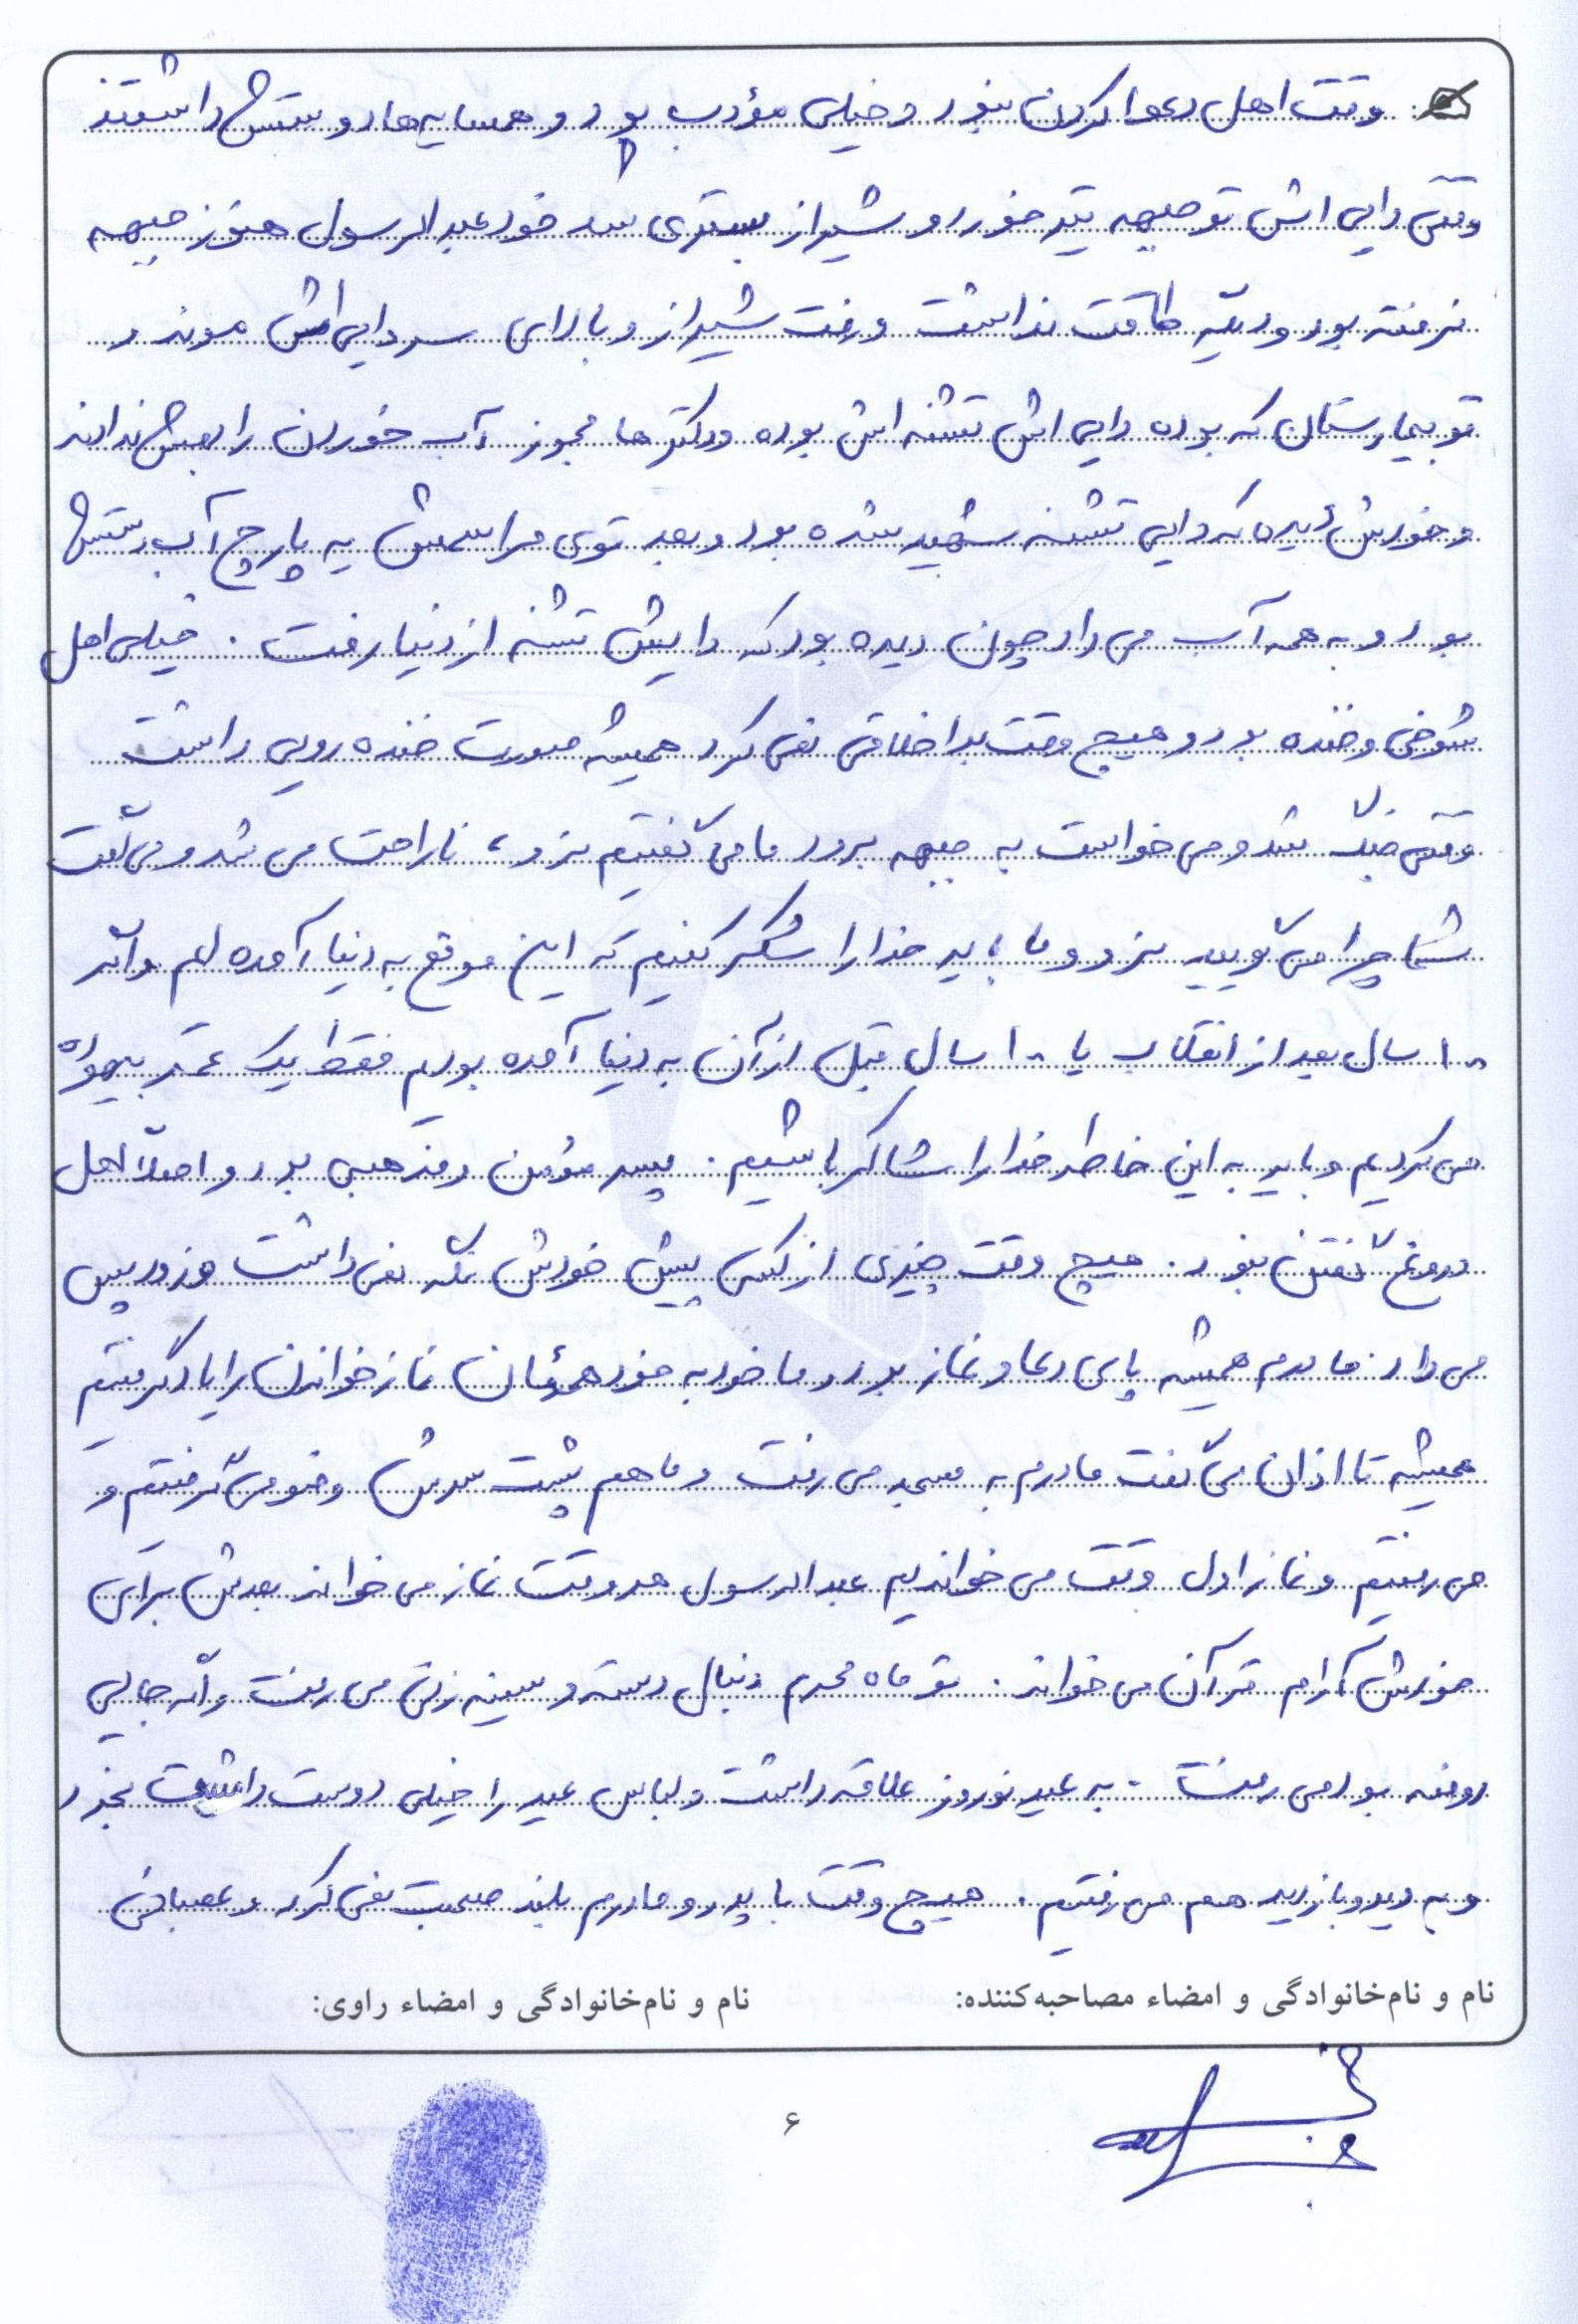 وقت اهل دعوا کردن نبود و خیلی مؤدب بود و همسایه‌ها دوستش داشتند
وقتی دایی اش تو جبهه تیر خورد و شیراز بستری شد خود عبدالرسول هنوز جبهه
نرفته بود و دیگه طاقت نداشت و رفت شیراز و بالای سر دایی اش موند و
تو بیمارستان که بوده دایی اش تشنه اش بوده و دکترها مجوز آب خوردن را بهش ندادند
و خودش دیده که دایی تشنه شهید شده بود و بعد توی مراسمش یه پارچ آب دستش
بود و به همه آب می داد چون دیده بود که داییش تشنه از دنیا رفت . خیلی اهل
شوخی و خنده بود و هیچ وقت بداخلاقی نمی کرد همیشه صورت خنده رویی داشت
وقتی جنگ شد و می خواست به جبهه برود ما می گفتیم نرو ، ناراحت می شد و می گفت
شما چرا می گویید نرو و ما باید خدا را شکر کنیم که این موقع به دنیا آمده ایم و اگر
۱۰۰ سال بعد از انقلاب یا ۱۰۰ سال قبل از آن به دنیا آمده بودیم فقط یک عمر بیهوده
می کردیم و باید به این خاطر خدا را شاکر باشیم . پسر مؤمن و مذهبی بود و اصلاً اهل
دروغ گفتن نبود . هیچ وقت چیزی از کسی پیش خودش نگه نمی داشت و زود پس
می داد . مادرم همیشه پای دعا و نماز بود و ما خود به خود همونان نماز خواندن را یاد گرفتیم
همیشه تا اذان می گفت مادرم به مسجد می رفت و ما هم پشت سرش وضو می گرفتیم و
می رفتیم و نماز اول وقت می خواندیم عبدالرسول هر وقت نماز می خواند بعدش برای
خودش آرام قرآن می خواند . تو ماه محرم دنبال دسته و سینه زنی می رفت و اگه جایی
روضه بود می رفت . به عید نوروز علاقه داشت و لباس عید را خیلی دوست داشت بخرد
و به دید و بازدید هم می رفتیم . هیچ وقت با پدر و مادرم بلند صحبت نمی کرد و عصبانی
نام و نام‌خانوادگی و امضاء مصاحبه‌کننده: نام و نام‌خانوادگی و امضاء راوی:
۶